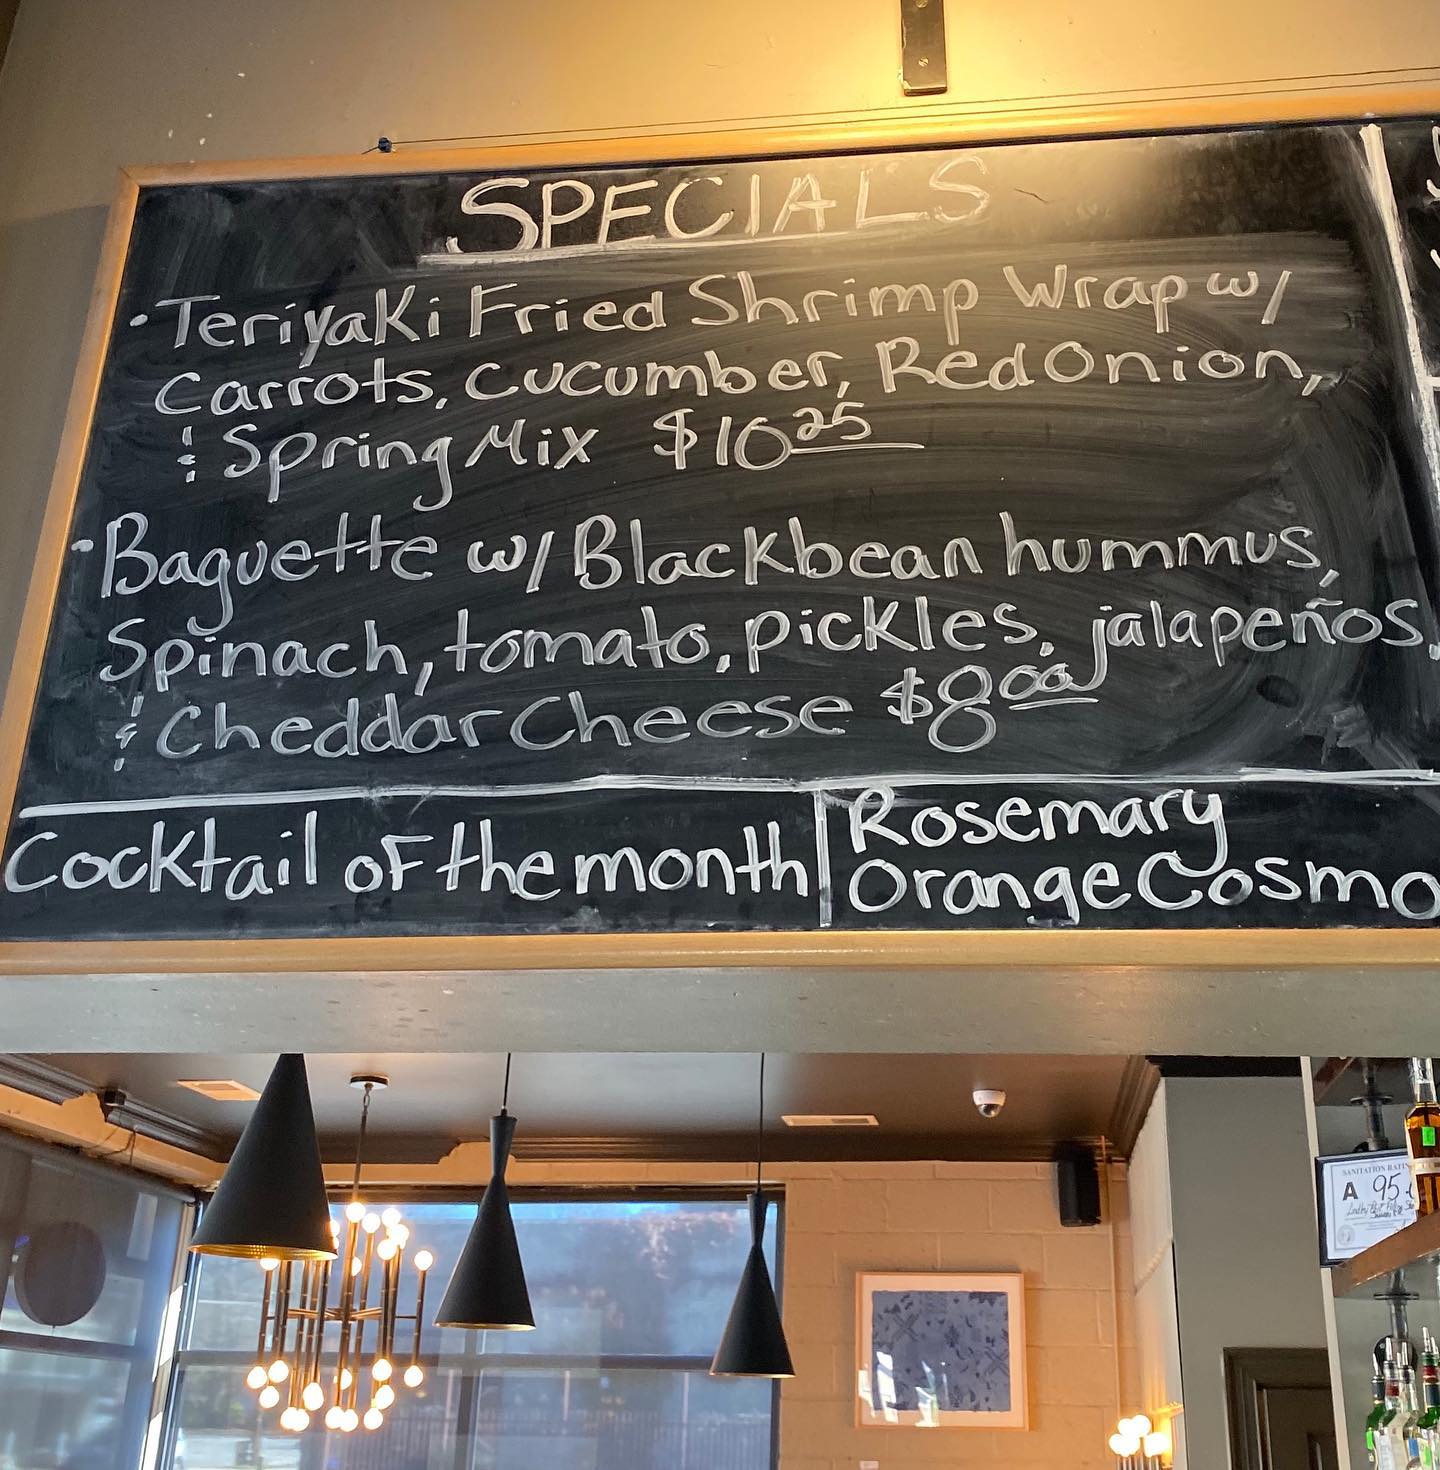 SPECIALS
• Teriyaki Fried Shrimp Wrap w/
Carrots, cucumber, Red Onion,
& Spring Mix $10 25
• Baguette w/ Blackbean hummus,
Spinach, tomato, pickles, jalapeños,
& Cheddar Cheese $8 00
Cocktail of the month
Rosemary
Orange Cosmo
SANITATION
A 95